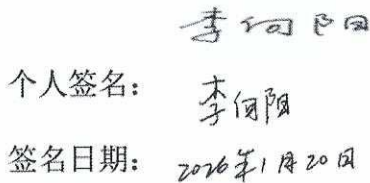 李向阳
个人签名： 李向阳
签名日期： 2026年1月20日